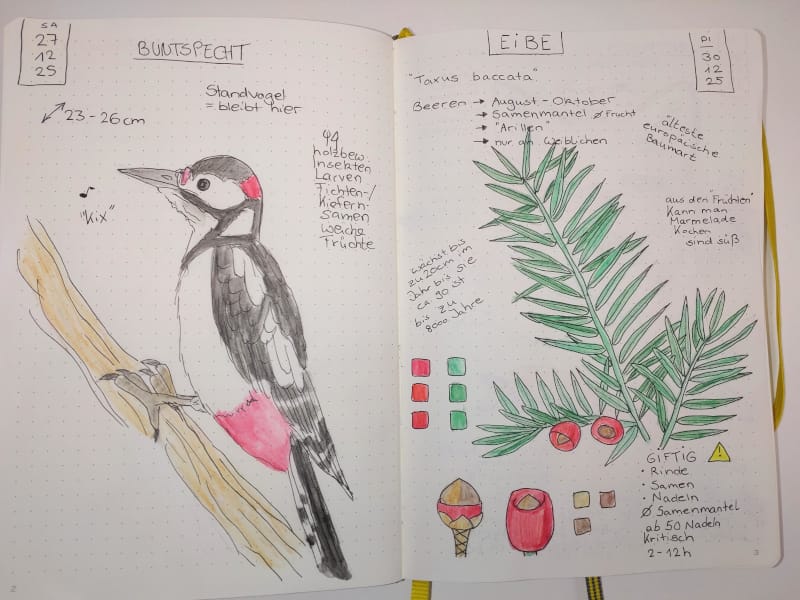 SA
27
12
25
BUNTSPECHT
23 - 26 cm
Standvogel
= bleibt hier
holzbew.
Insekten
Larven
Fichten-/
Kiefern-
samen
weiche
Früchte
"Kix"
2
EIBE
DI
30
12
25
"Taxus baccata"
Beeren → August - Oktober
→ Samenmantel Ø Frucht
→ "Arillen"
→ nur an Weiblichen
älteste
europäische
Baumart
aus den "Früchten"
Kann man
Marmelade
Kochen
sind süß
wächst bis
zu 20cm im
Jahr bis sie
ca 90 ist
bis zu
8000 Jahre
GIFTIG
· Rinde
· Samen
· Nadeln
Ø Samenmantel
ab 50 Nadeln
Kritisch
2 - 12h
3